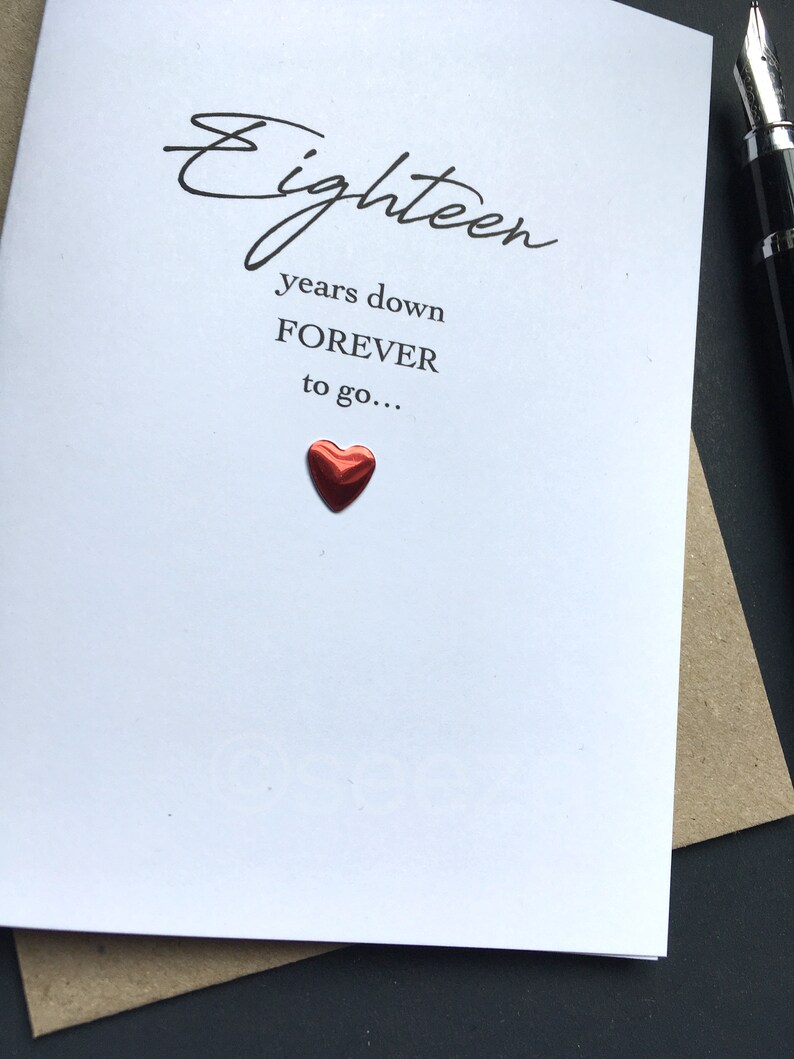 Eighteen
years down
FOREVER
to go...